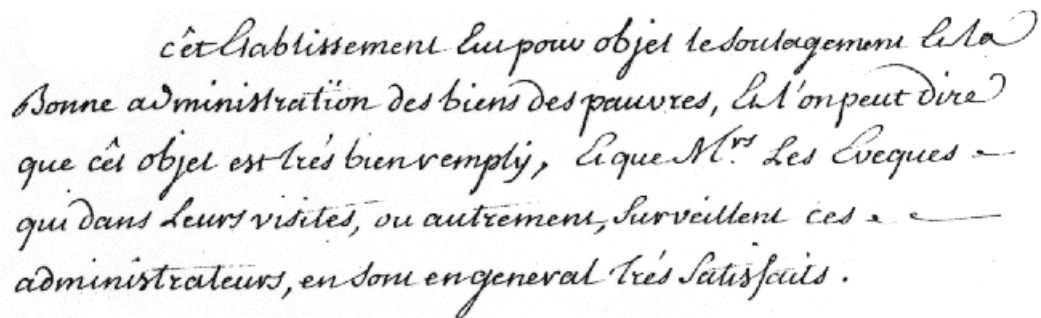 cêt Etablissement Eut pour objet le soulagement Et la
Bonne administratiön des biens des pauvres, Et l'on peut dire
que cêt objet est trés bien remply, Et que M.rs Les Eveques
qui dans Leurs visites, ou autrement, Surveillent ces
administrateurs, en sont en general trés Satisfaits.